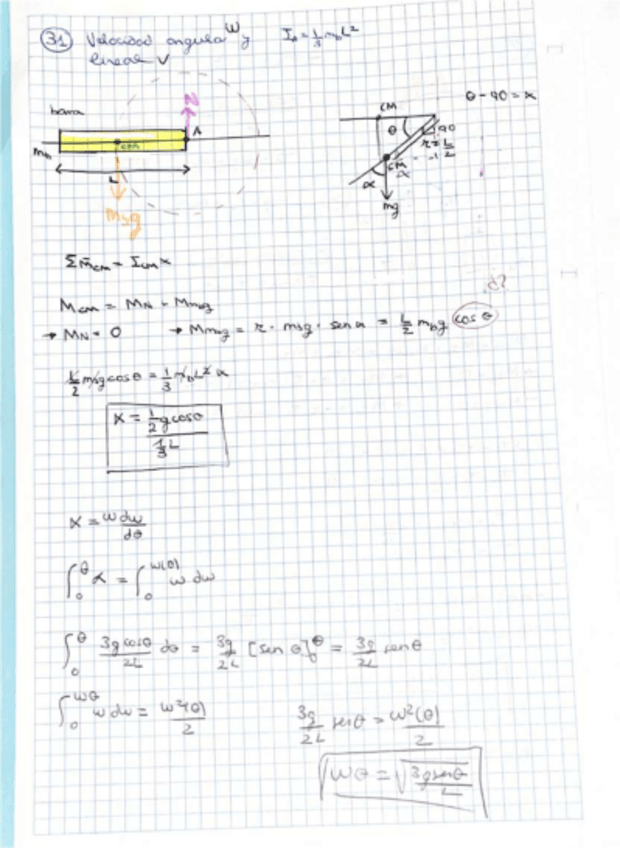 31 Velocidad angular ω y I₀ = 1/3 m_b L²
lineal v
barra
N
A
CM
m_b
L
m_b g
CM
θ - 90 = α
θ
90
r = L/2
CM
α
α
mg
Σ M_CM = I_CM α
M_CM = M_N + M_mg
→ M_N = 0 → M_mg = r · m_b g · sen α = L/2 m_b g cos θ
¿?
L/2 m_b g cos θ = 1/3 m_b L² α
α = (1/2 g cos θ)/(1/3 L)
α = ω dω/dθ
∫₀^θ α = ∫₀^ω(θ) ω dω
∫₀^θ 3g cos θ/2L dθ = 3g/2L [sen θ]₀^θ = 3g/2L sen θ
∫₀^ωθ ω dω = ω²(θ)/2
3g/2L sen θ = ω²(θ)/2
ωθ = √(3g sen θ/L)